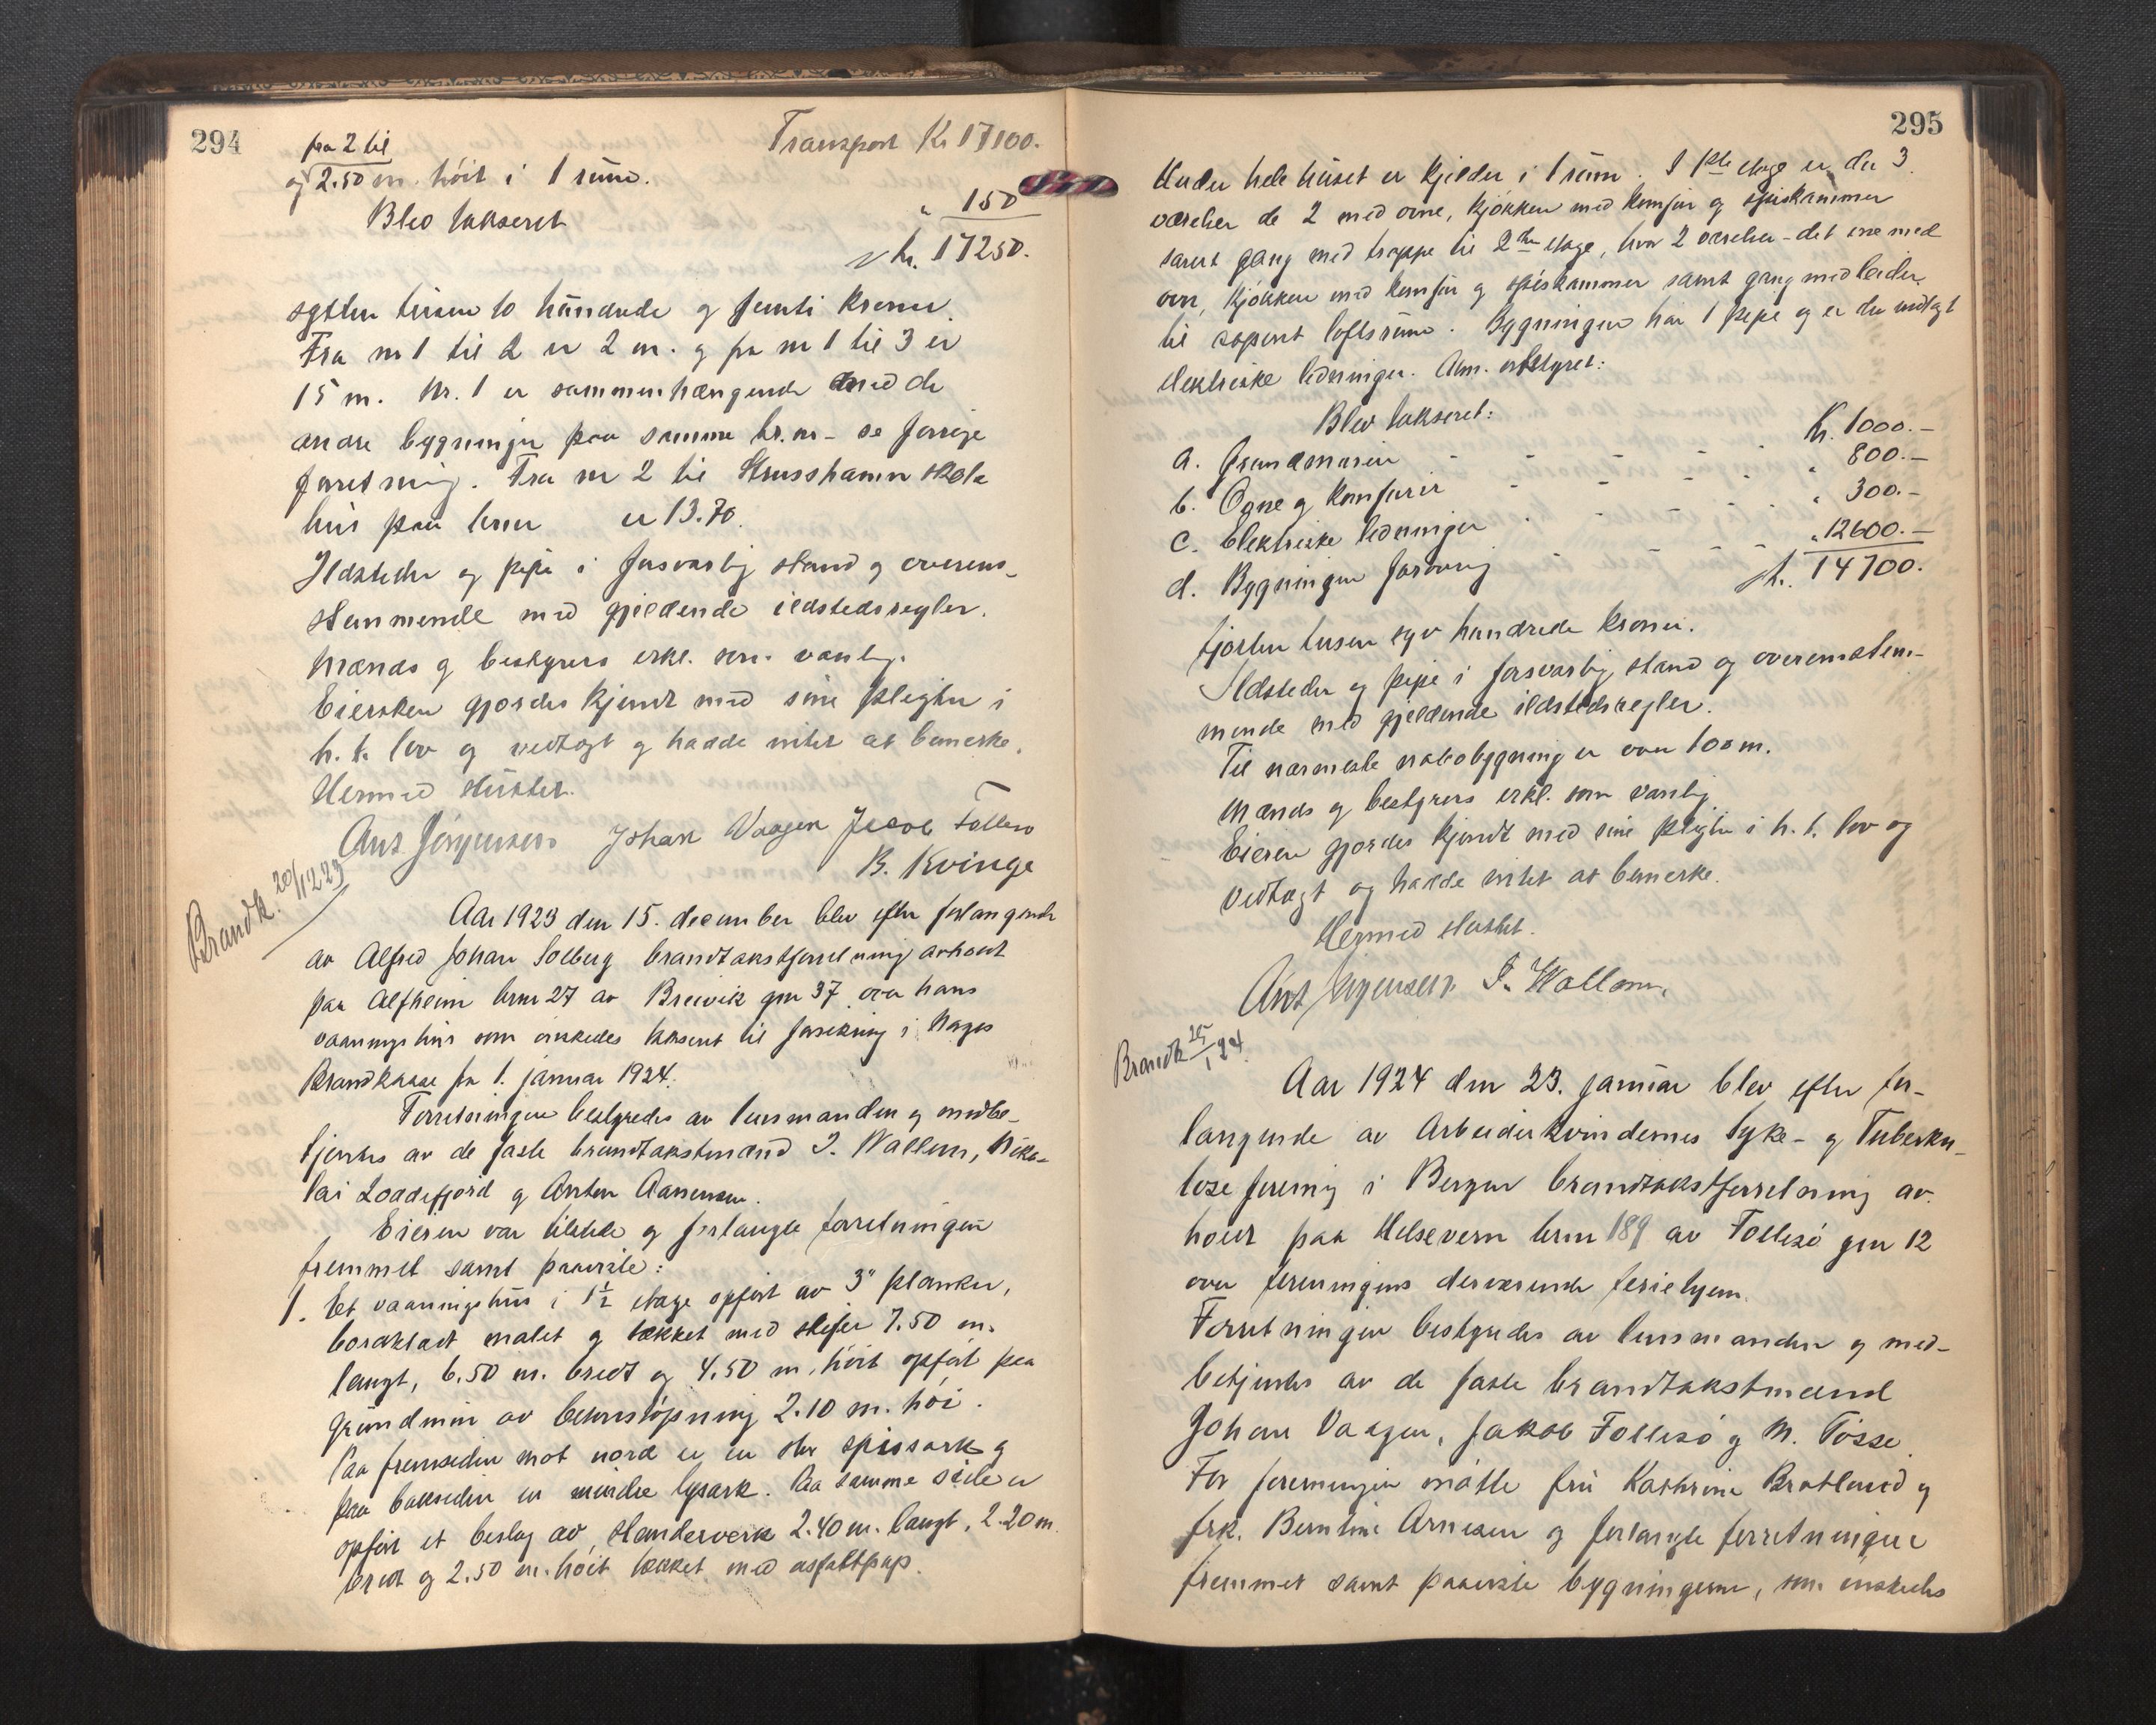 294
Transport Kr 17100.
fra 2 til
og 2.50 m. höit i 1 rum.
Blev takseret " 150
kr. 17250.
sytten tusen to hundrede og femti kroner.
Fra nr 1 til 2 er 2 m. og fra nr 1 til 3 er
15 m. Nr. 1 er sammenhængende med de
andre bygninger paa samme br.nr - se forrige
forretning. Fra nr 2 til Strusshamn skole
hus paa brnr er 13.70.
Ildsteder og pipe i forsvarlig stand og overens-
stemmende med gjeldende ildstedsregler.
Mænds og bestyrers erkl. som vanlig.
Eiersken gjordes kjendt med sine pligter i
h. t. lov og vedtægt og hadde intet at bemerke.
Hermed sluttet.
Ant Jörgensen. Johan Vaagen Jacob Follesö
B. Kvinge
Brandk. 20/12 23
Aar 1923 den 15. december blev efter forlangende
av Alfred Johan Solberg brandtakstforretning avholdt
paa Alfheim brnr 27 av Breivik gnr 37 over hans
vaaningshus som önskedes takseret til forsikring i Norges
Brandkasse fra 1. januar 1924.
Forretningen bestyredes av lensmanden og medbe-
tjentes av de faste brandtakstmænd I. Wallem, Niko-
lai Loddefjord og Anton Aanensen.
Eieren var tilstede og forlangte forretningen
fremmet samt paaviste:
1. Et vaaningshus i 1½ etage opfört av 3" planker,
bordklædt malet og tækket med skifer 7.50 m.
langt, 6.50 m. bredt og 4.50 m. höit opfört paa
grundmur av betonstöpning 2.10 m. höi.
Paa fremsiden mot nord er en stor spissark og
paa baksiden en mindre lysark. Paa samme side er
opfört et beslag av standerverk 2.40 m. langt, 2.20 m.
bredt og 2.50 m. höit tækket med asfaltpap.
295
Under hele huset er kjelder i 1 rum. I 1ste etage er der 3
værelser de 2 med ovne, kjökken med komfur og spiskammer
samt gang med trappe til 2den etage, hvor 2 værelser - det ene med
ovn, kjökken med komfur og spiskammer samt gang med leider
til aapent loftsrum. Bygningen har 1 pipe og er der indlagt
elektriske ledninger. Alm. utstyret:
Blev takseret:
a. Grundmuren - - - - Kr. 1000.-
b. Ovne og komfurer - - - - " 800.-
c. Elektriske ledninger - - - " 300.-
d. Bygningen forövrig - - - " 12600.-
kr. 14700.
fjorten tusen syv hundrede kroner.
Ildsteder og pipe i forsvarlig stand og overenstem-
mende med gjeldende ildstedsregler.
Til nærmeste nabobygning er over 100 m.
Mænds og bestyrers erkl. som vanlig
Eieren gjordes kjendt med sine pligter i h. t. lov og
vedtægt og hadde intet at bemerke.
Hermed sluttet.
Ant Jörgensen. I. Wallem.
Brandk 25/1 24.
Aar 1924 den 23. januar blev efter for-
langende av Arbeiderkvindernes Syke- og Tuberku-
lose forening i Bergen brandtakstforretning av-
holdt paa Helsevern brnr 189 av Follesö gnr 12
over foreningens derværende feriehjem.
Forretningen bestyredes av lensmanden og med-
betjentes av de faste brandtakstmænd
Johan Vaagen, Jakob Follesö og N. Tösse.
For foreningen mötte fru Kathrine Bratland og
frk. Berntine Arnesen og forlangte forretningen
fremmet samt paaviste bygningerne, som önskedes